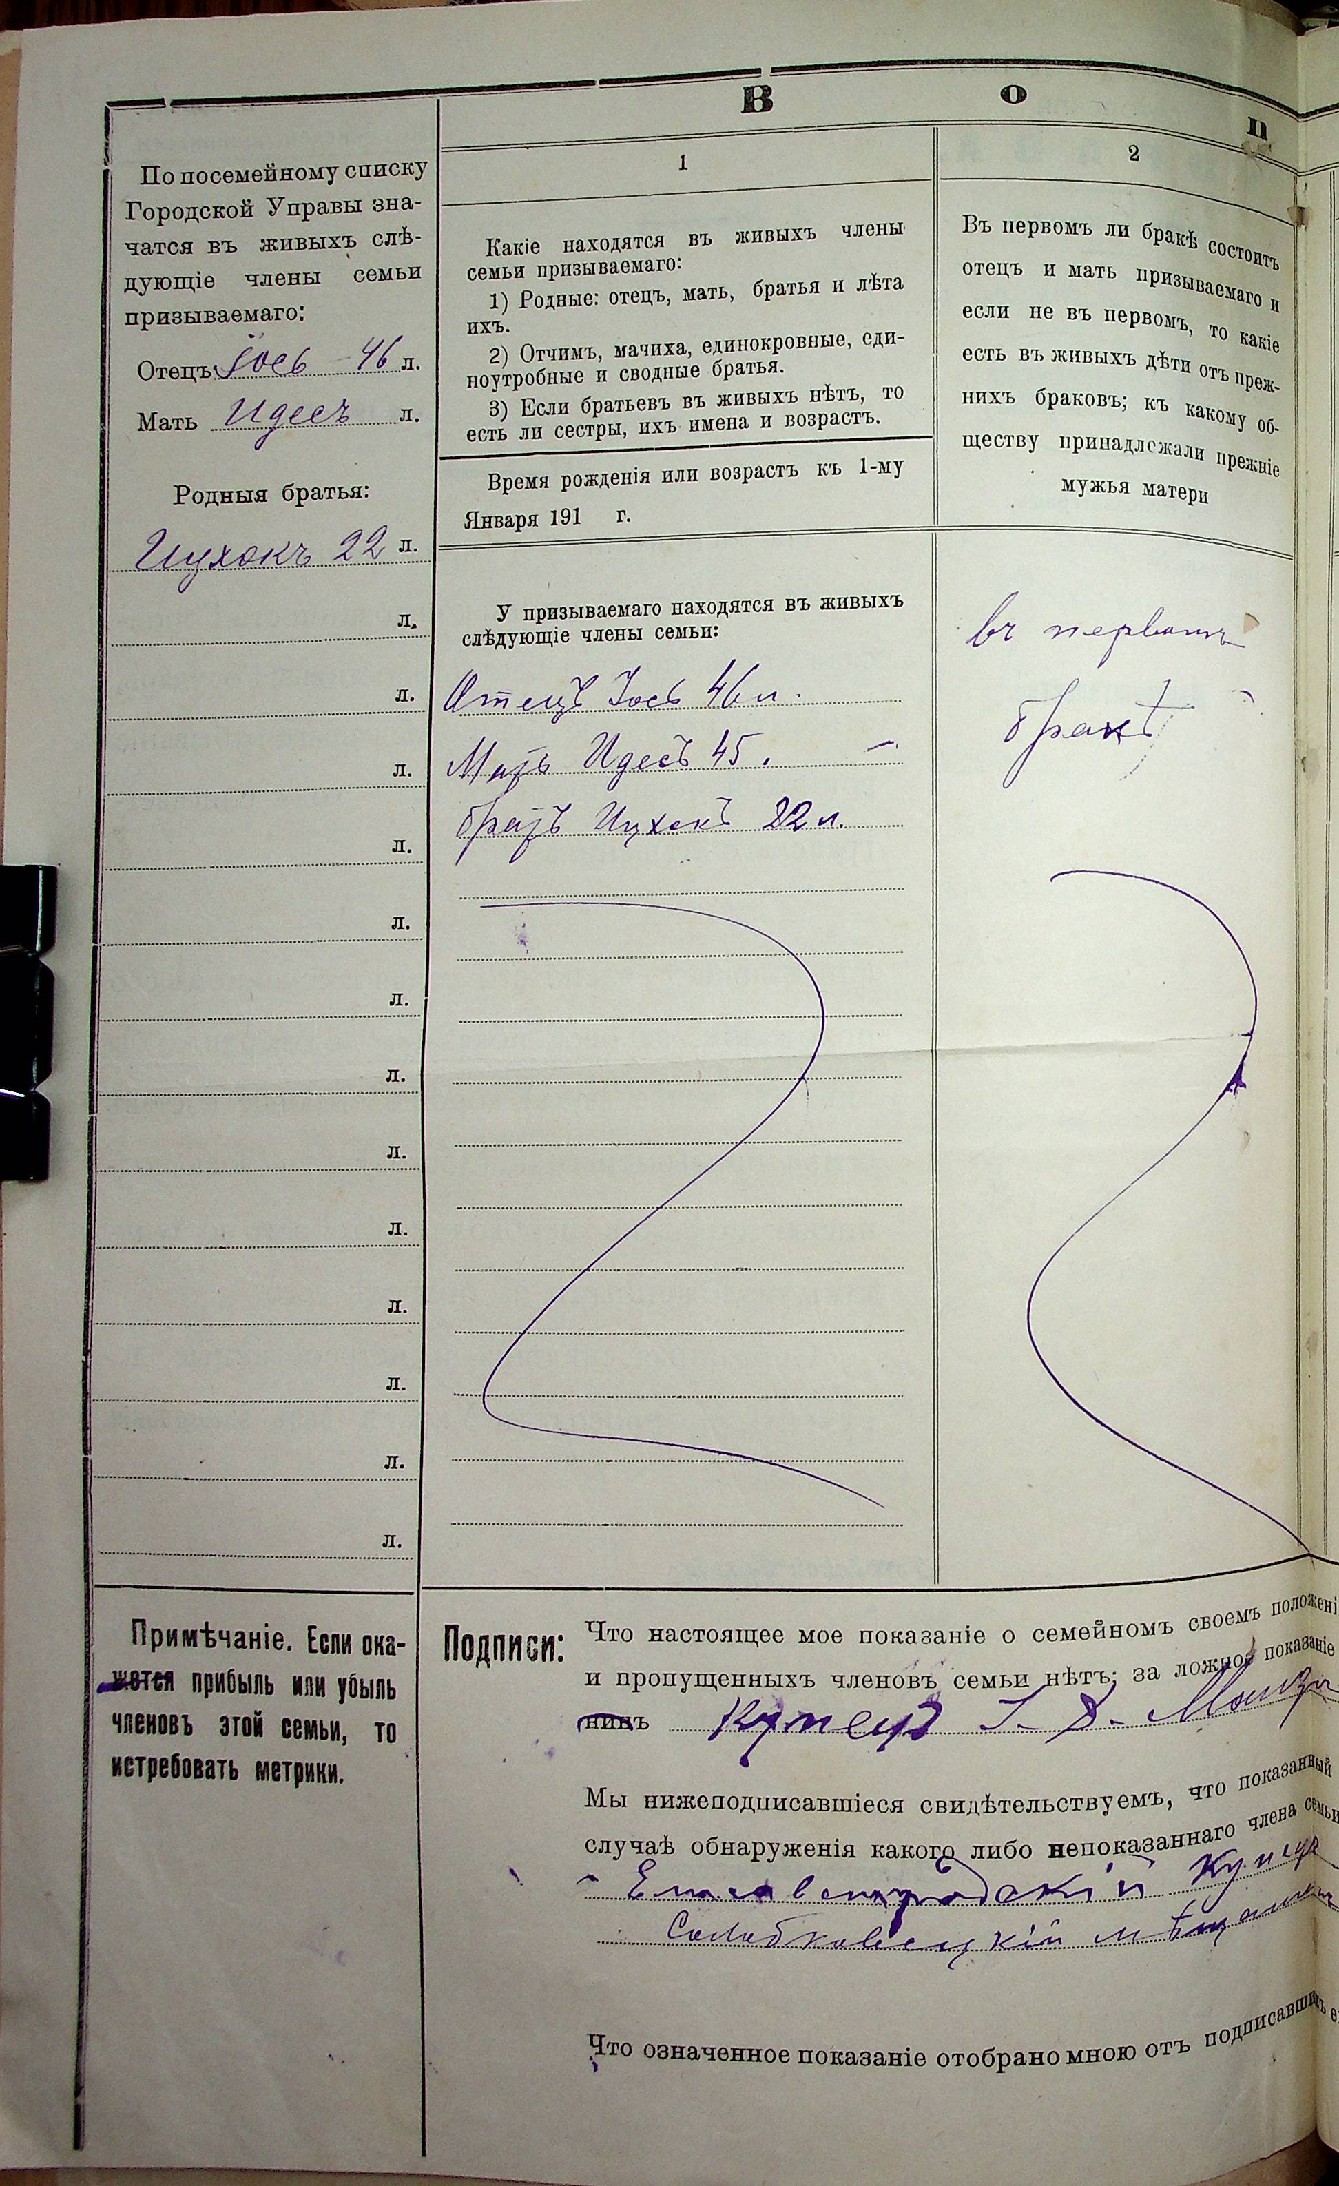 В о п
По посемейному списку
Городской Управы зна-
чатся въ живыхъ слѣ-
дующіе члены семьи
призываемаго:
Отецъ Іось 46 л.
Мать Идесъ л.
Родныя братья:
Ицхокъ 22 л.
л.
л.
л.
л.
л.
л.
л.
л.
л.
л.
л.
л.
л.
1
Какіе находятся въ живыхъ члены
семьи призываемаго:
1) Родные: отецъ, мать, братья и лѣта
ихъ.
2) Отчимъ, мачиха, единокровные, еди-
ноутробные и сводные братья.
3) Если братьевъ въ живыхъ нѣтъ, то
есть ли сестры, ихъ имена и возрастъ.
Время рожденія или возрастъ къ 1-му
Января 191 г.
У призываемаго находятся въ живыхъ
слѣдующіе члены семьи:
Отецъ Іось 46 л.
Мать Идесъ 45.
братъ Ицхокъ 22 л.
2
Въ первомъ ли бракѣ состоитъ
отецъ и мать призываемаго и
если не въ первомъ, то какіе
есть въ живыхъ дѣти отъ преж-
нихъ браковъ; къ какому об-
ществу принадлежали прежніе
мужья матери
въ первомъ
бракѣ
Примѣчаніе. Если ока-
жется прибыль или убыль
членовъ этой семьи, то
истребовать метрики.
Подписи:
Что настоящее мое показаніе о семейномъ своемъ положені
и пропущенныхъ членовъ семьи нѣтъ; за ложное показаніе
нинъ Купецъ І. Д.
Мы нижеподписавшіеся свидѣтельствуемъ, что показанный
случаѣ обнаруженія какого либо непоказаннаго члена семьи
Елисаветградскій Купецъ
Солобковецкій мѣщанин
Что означенное показаніе отобрано мною отъ подписавшихъ